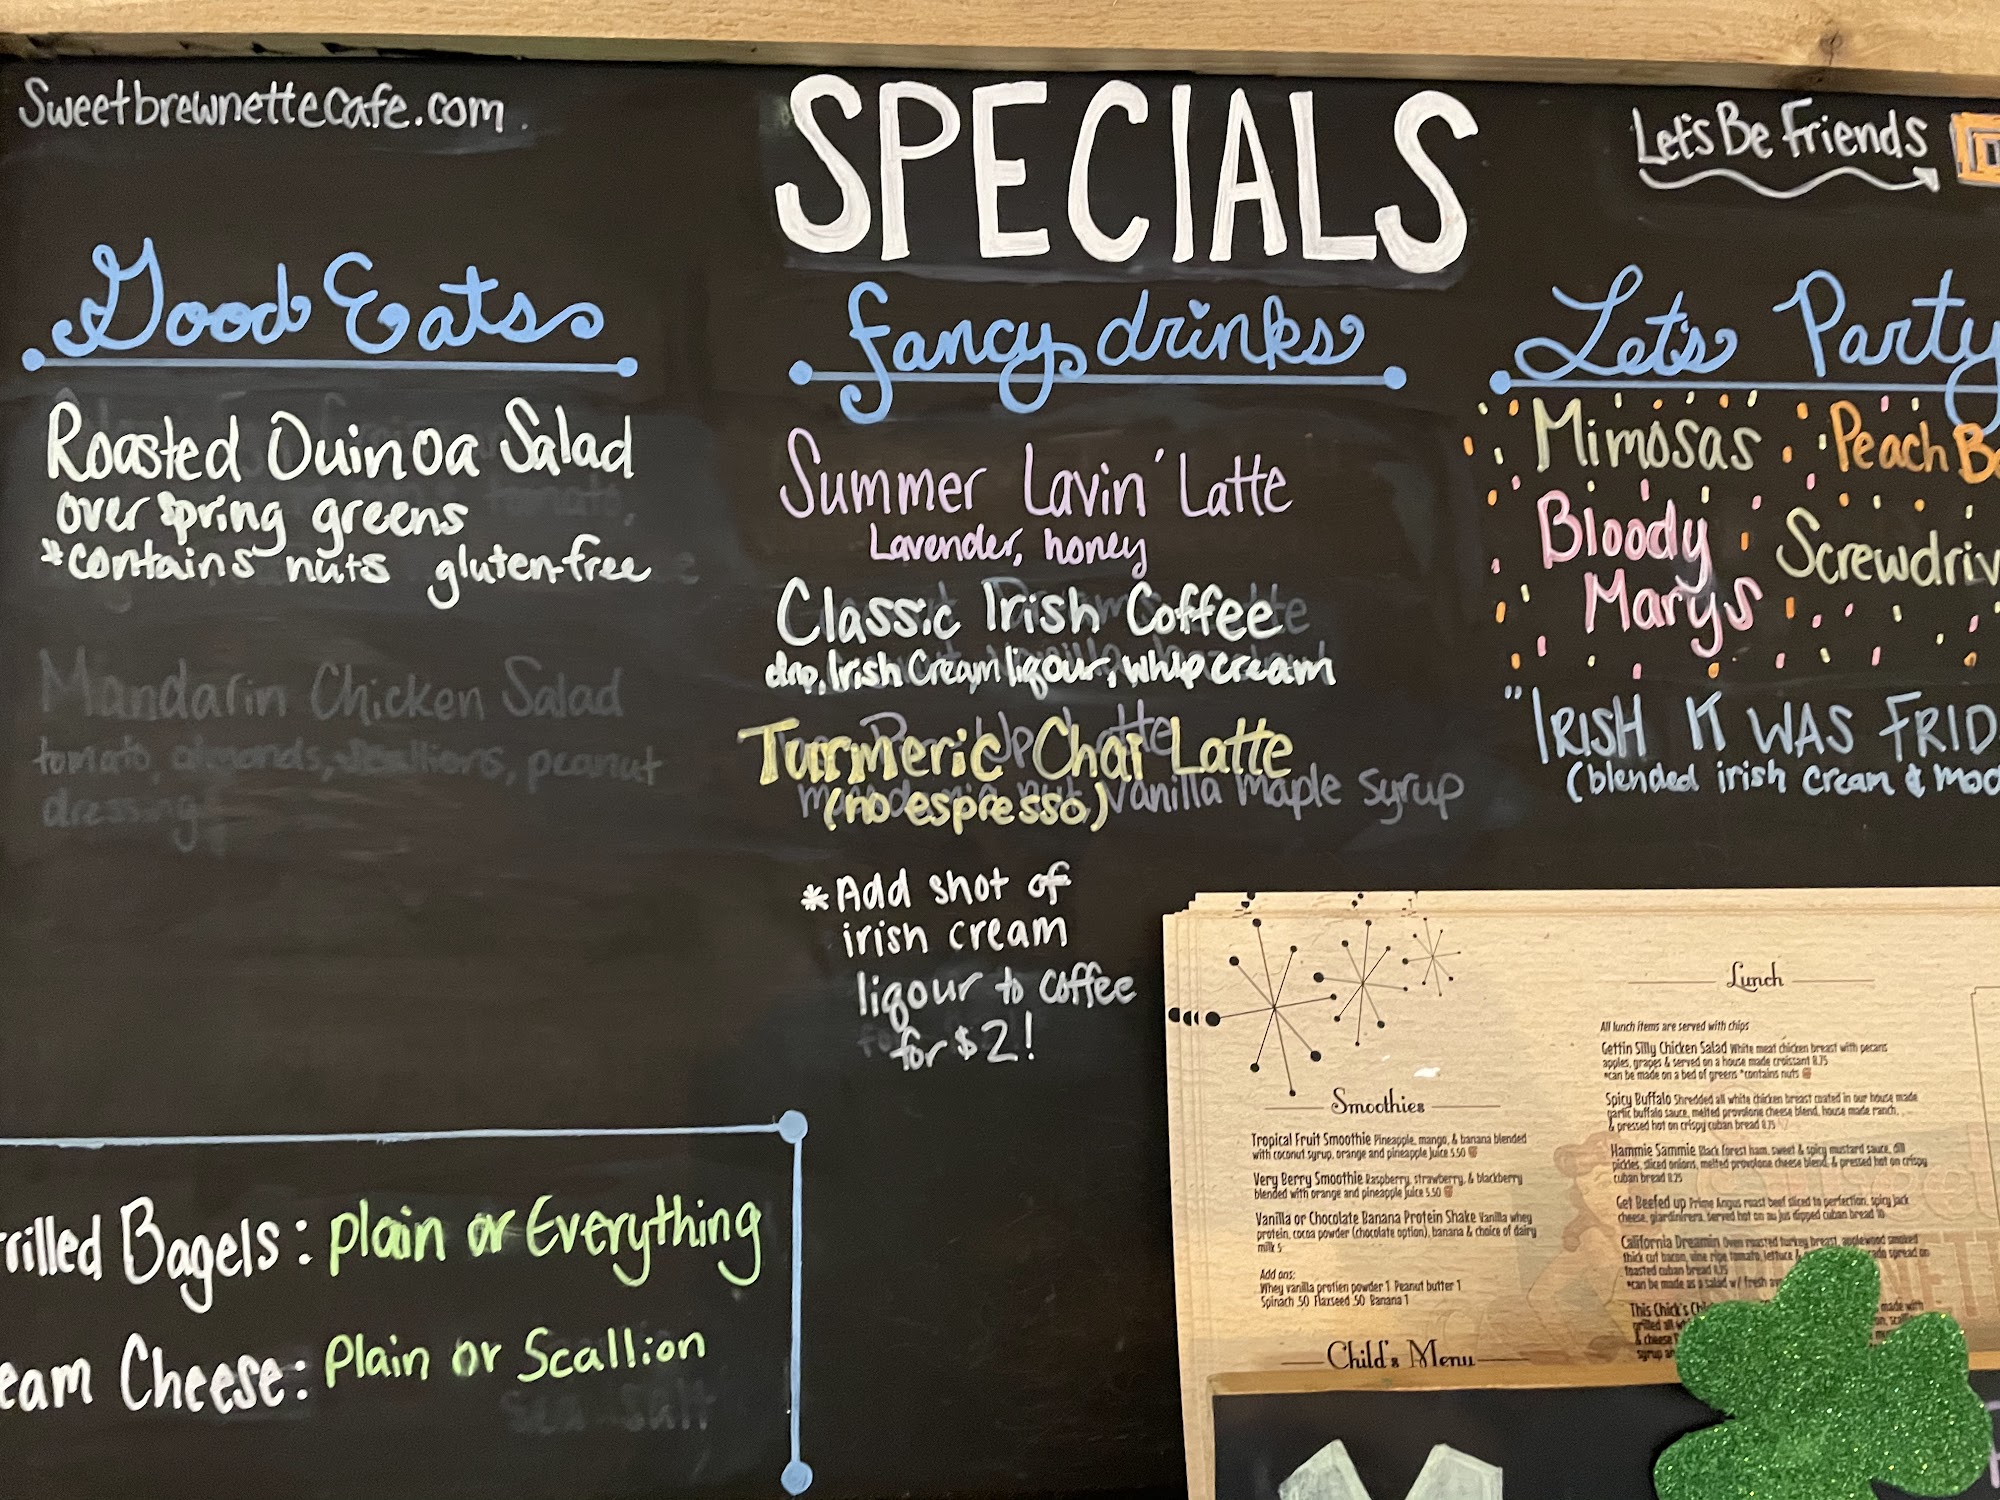 Sweetbrewnettecafe.com
SPECIALS
Let's Be Friends
Good Eats
Roasted Quinoa Salad
over spring greens
*contains nuts gluten-free
Mandarin Chicken Salad
tomato, almonds, scallions, peanut
dressing
fancy drinks
Summer Lavin' Latte
Lavender, honey
Classic Irish Coffee
drip, Irish Cream liqour, whip cream
Turmeric Chai Latte
(no espresso)
Vanilla Maple Syrup
*Add shot of
irish cream
liqour to coffee
for $2!
Let's Party
Mimosas
Peach
Bloody
Marys
"IRISH IT WAS
(blended irish cream &
Bagels: plain or Everything
Cheese: Plain or Scallion
sea salt
Smoothies
Tropical Fruit Smoothie Pineapple, mango, & banana blended
with coconut syrup, orange and pineapple juice 5.50
Very Berry Smoothie Raspberry, strawberry, & blackberry
blended with orange and pineapple juice 5.50
Vanilla or Chocolate Banana Protein Shake Vanilla whey
protein, cocoa powder (chocolate option), banana & choice of dairy
milk 5
Add ons:
Whey vanilla protien powder 1 Peanut butter 1
Spinach .50 Flaxseed .50 Banana 1
Child's Menu
Lunch
All lunch items are served with chips
Gettin Silly Chicken Salad White meat chicken breast with pecans
apples, grapes & served on a house made croissant 8.75
*can be made on a bed of greens *contains nuts
Spicy Buffalo Shredded all white chicken breast coated in our house made
garlic buffalo sauce, melted provolone cheese blend, house made ranch,
& pressed hot on crispy cuban bread 8.75
Hammie Sammie Black forest ham, sweet & spicy mustard sauce, dill
pickles, sliced onions, melted provolone cheese blend, & pressed hot on crispy
cuban bread 8.25
Get Beefed up Prime Angus roast beef sliced to perfection, spicy jack
cheese, giardinirera, served hot on au jus dipped cuban bread 10
California Dreamin Oven roasted turkey breast, applewood smoked
thick cut bacon, vine ripe tomato, lettuce & spread on
toasted cuban bread
*can be made as a salad w/ fresh
This Chick's made with
grilled all
& cheese
syrup